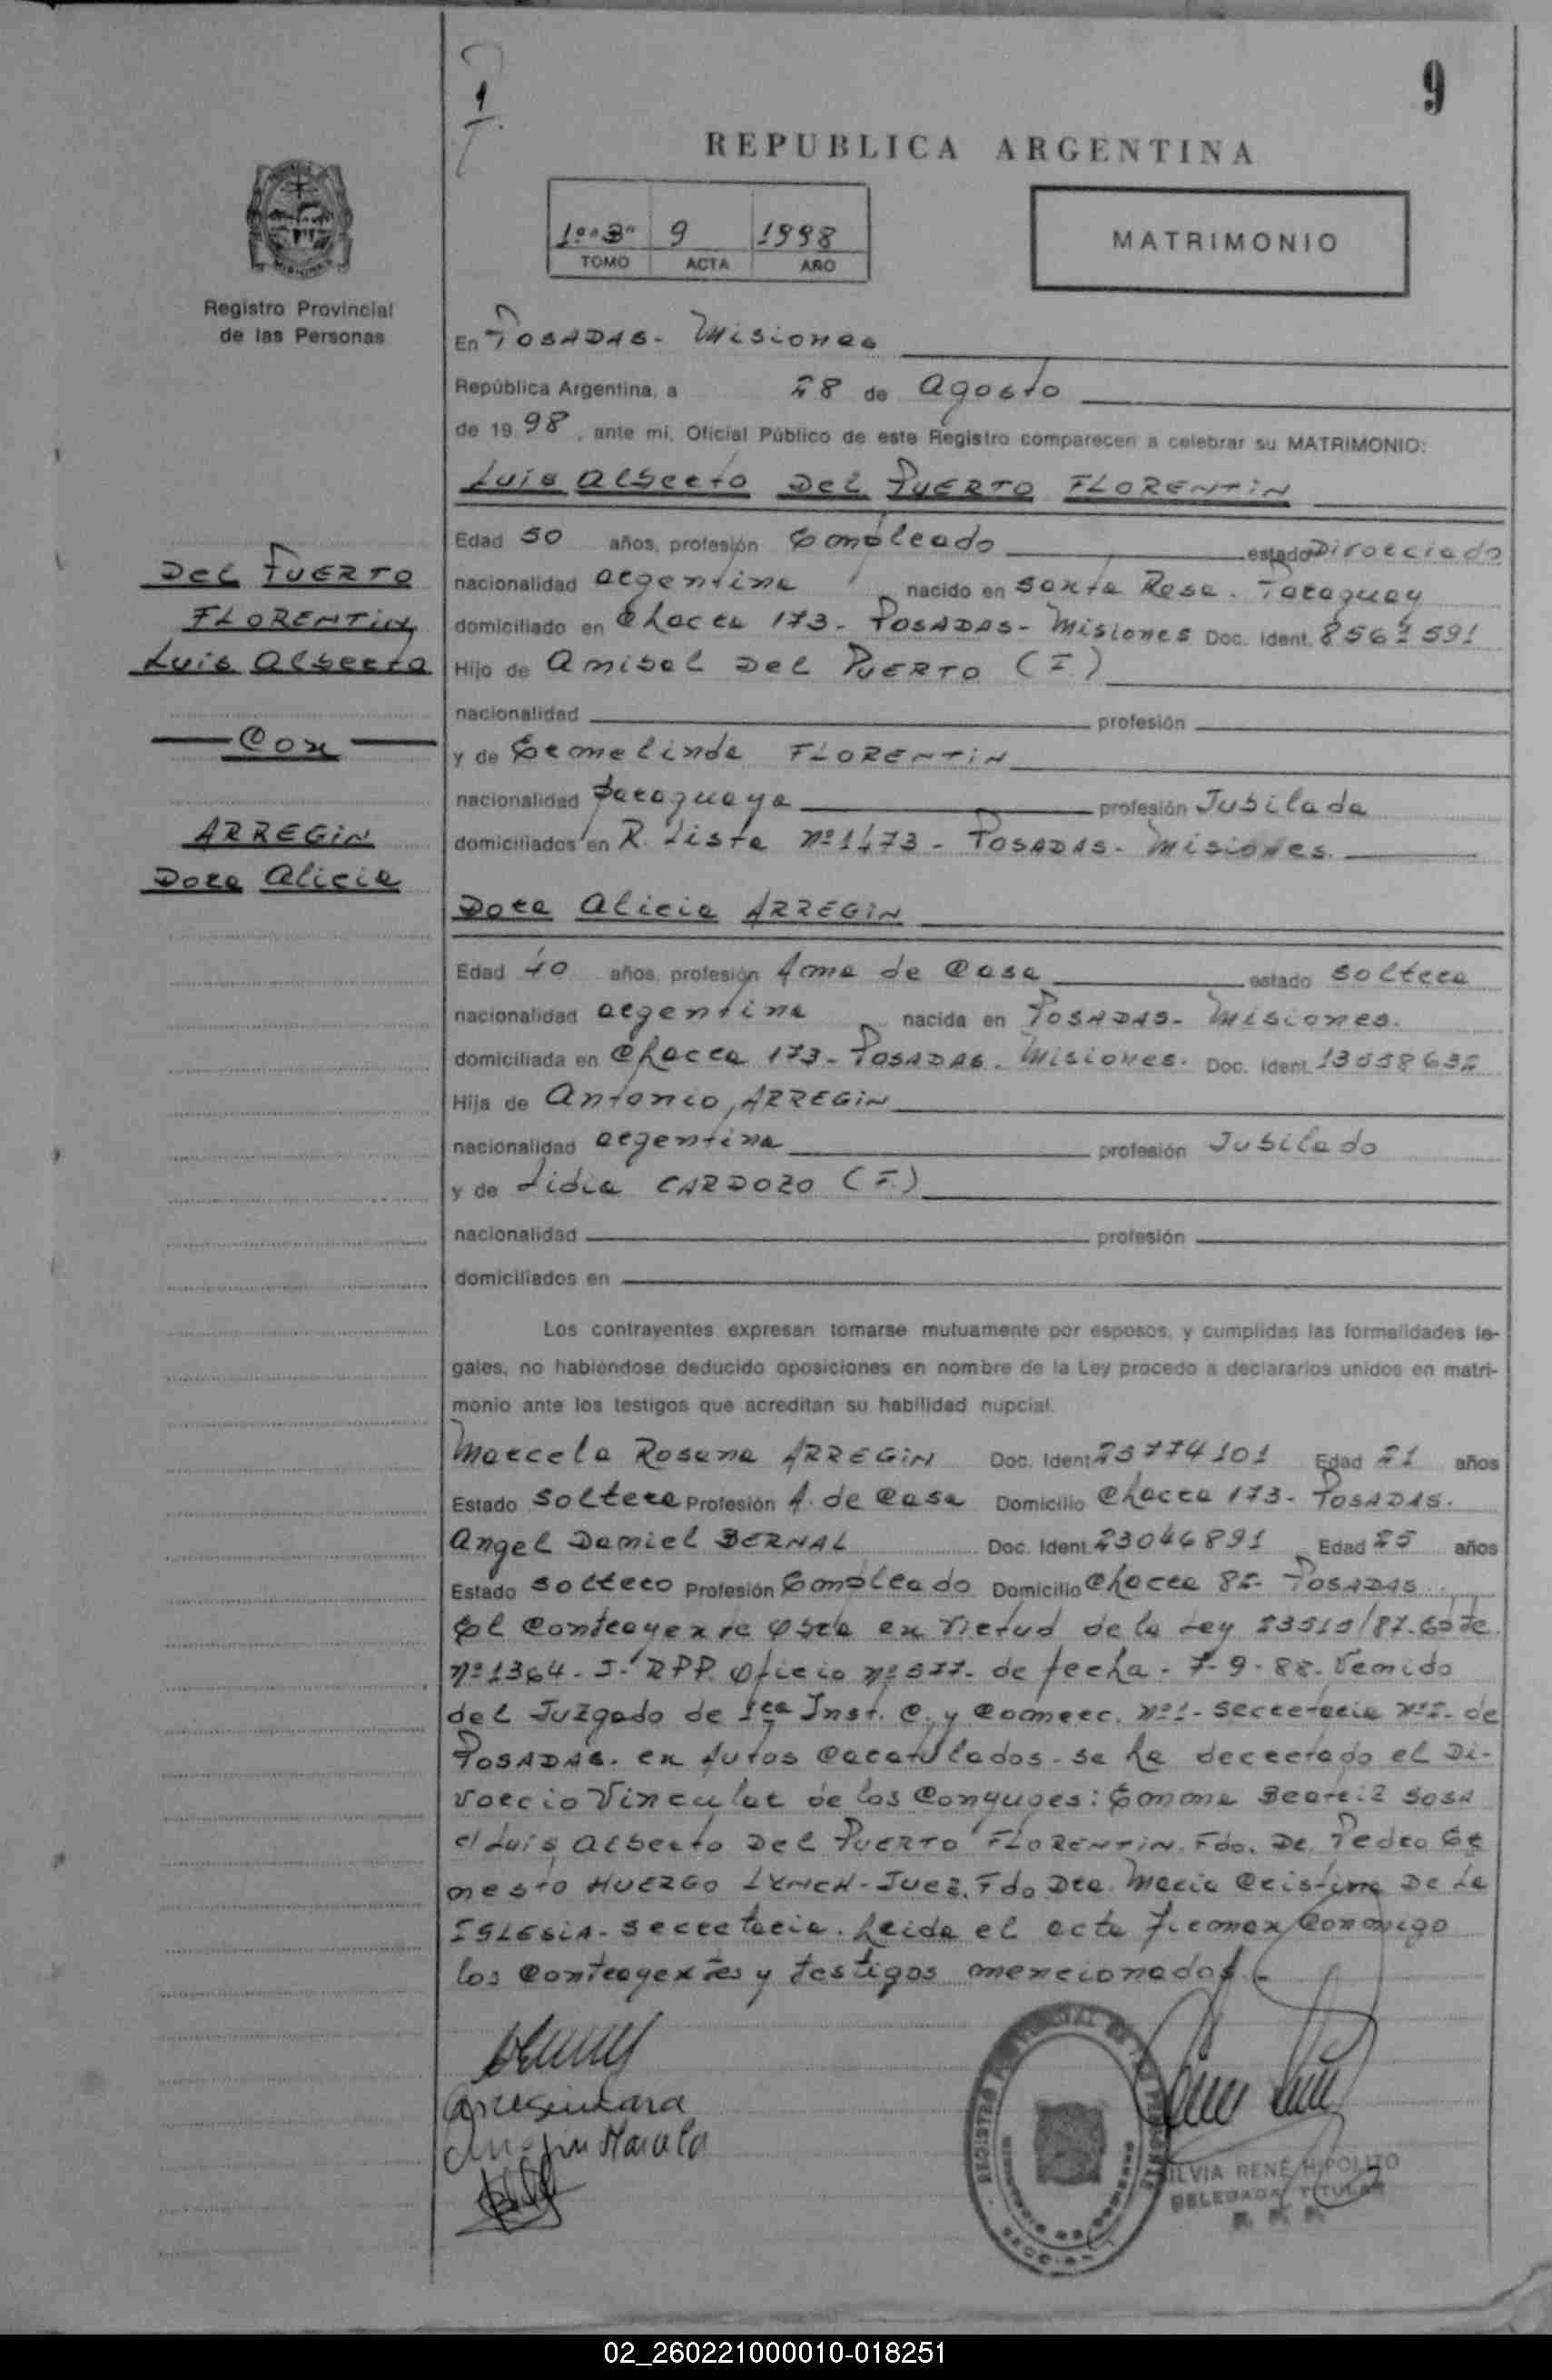 9
REPUBLICA ARGENTINA
1º "3" 9 1998
TOMO ACTA AÑO
MATRIMONIO
Registro Provincial
de las Personas
En POSADAS - Misiones
República Argentina, a 28 de Agosto
de 19 98, ante mí, Oficial Público de este Registro comparecen a celebrar su MATRIMONIO:
Luis Alberto Del PUERTO FLORENTIN
Edad 50 años, profesión Empleado estado Divorciado
nacionalidad argentina nacido en Santa Rosa - Paraguay
domiciliado en Chacra 173 - POSADAS - Misiones Doc. Ident. 8561591
Hijo de Anibal Del PUERTO (F)
nacionalidad profesión
y de Ermelinda FLORENTIN
nacionalidad paraguaya profesión Jubilada
domiciliados en R. Lista Nº 1473 - POSADAS - Misiones.
DEL PUERTO
FLORENTIN
Luis Alberto
Con
ARREGIN
Dora Alicia
Dora Alicia ARREGIN
Edad 40 años, profesión Ama de Casa estado Soltera
nacionalidad argentina nacida en POSADAS - Misiones.
domiciliada en Chacra 173 - POSADAS - Misiones. Doc. Ident.
Hija de Antonio, ARREGIN
nacionalidad argentina profesión Jubilado
y de Lidia CARDOZO (F.)
nacionalidad profesión
domiciliados en
Los contrayentes expresan tomarse mutuamente por esposos, y cumplidas las formalidades le-
gales, no habiéndose deducido oposiciones en nombre de la Ley procedo a declararlos unidos en matri-
monio ante los testigos que acreditan su habilidad nupcial.
Marcela Rosana ARREGIN Doc. Ident 25774101 Edad 21 años
Estado Soltera Profesión A. de Casa Domicilio Chacra 173 - POSADAS.
Angel Daniel BERNAL Doc. Ident. 23046891 Edad 25 años
Estado Soltero Profesión Empleado Domicilio Chacra POSADAS
El Contrayente en virtud de la Ley 23515/87.
Nº 1364 - RPP. Oficio Nº 577 - de fecha - 7-9-88 - Venido
del Juzgado de 1ra Inst. C. y Comerc. Nº 1 - Secretaria de
POSADAS. en Autos Caratulados - se ha decretado el Di-
vorcio Vincular de los Conyuges: Emma Beatriz SOSA
c/ Luis Alberto Del PUERTO FLORENTIN. Fdo. Dr. Pedro Er
nesto HUERGO LYNCH - Juez. Fdo Dra. Maria Cristina De La
IGLESIA - Secretaria. Leida el acta firman Conmigo
los Contrayentes y testigos mencionados -
SILVIA RENÉ HIPOLITO
DELEGADA TITULAR
02_260221000010-018251